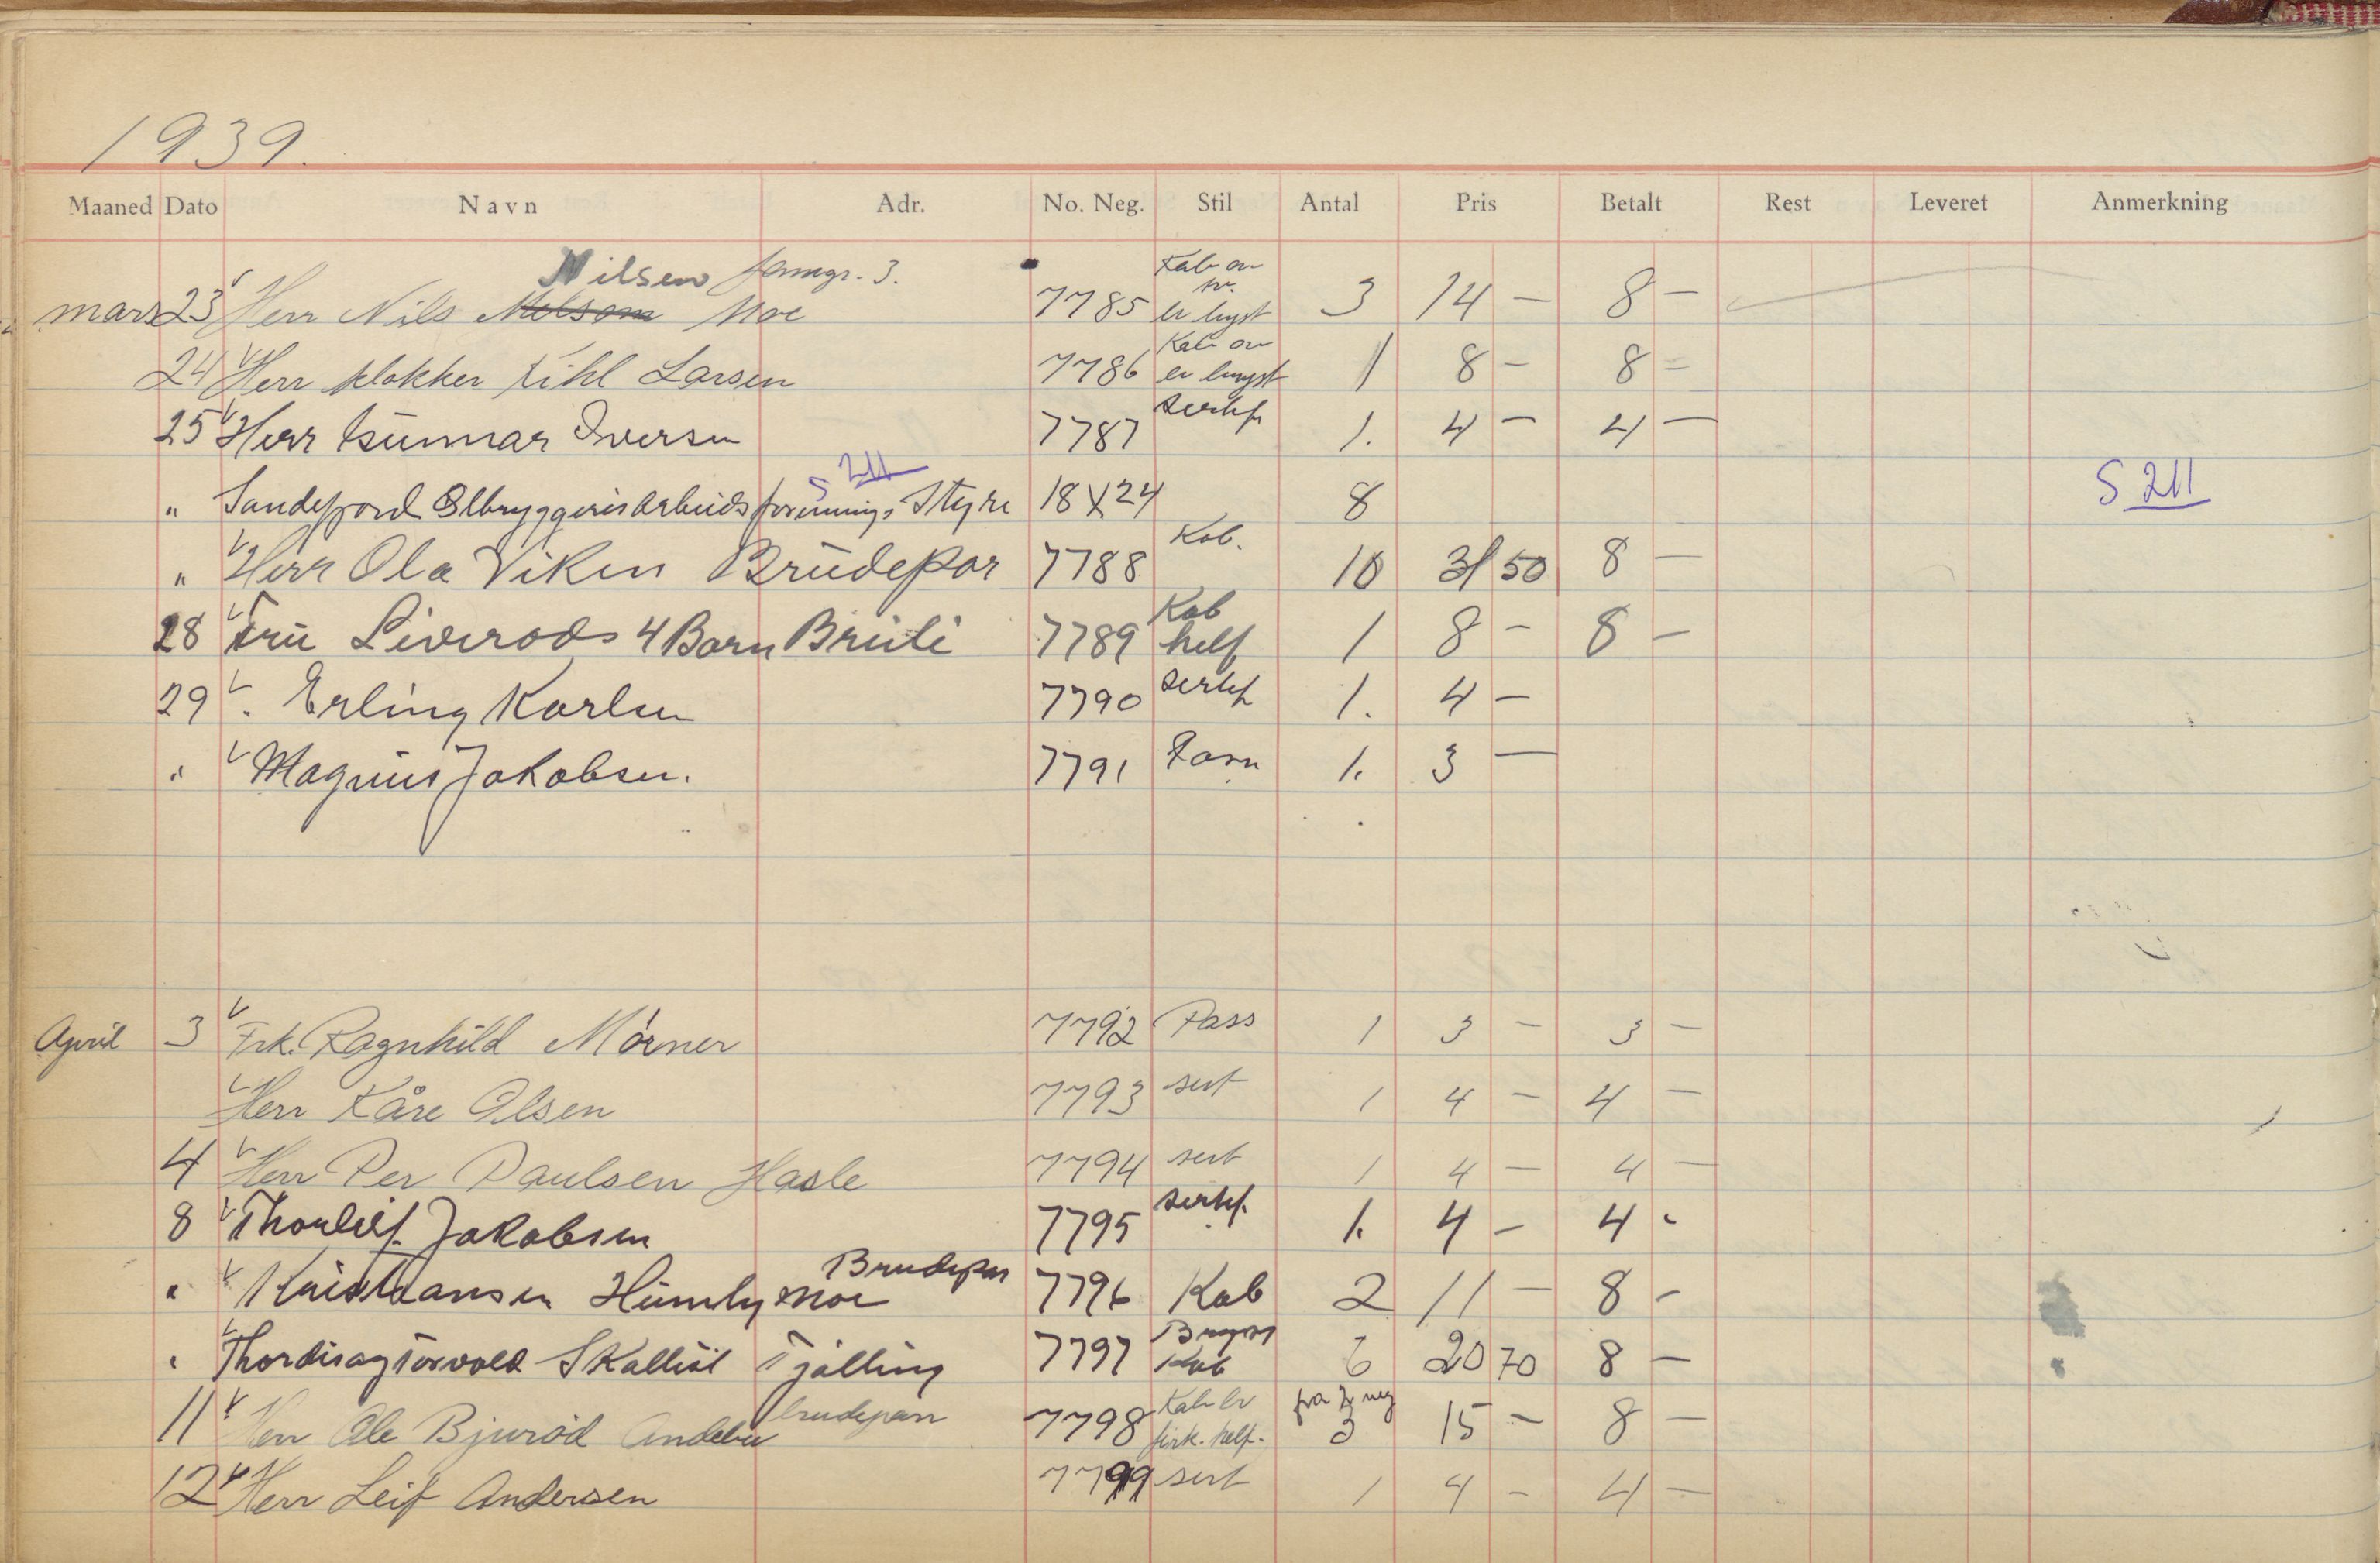 1939.
Maaned Dato Navn Adr. No. Neg. Stil Antal Pris Betalt Rest Leveret Anmerkning
Nilsen famgr. 3. Kab on
mars 23 Herr Nils Melsom Moe 7785 er bryst 3 14 — 8 —
Kab on
24 Herr klokker Kihl Larsen 7786 er bryst 1 8 — 8 =
25 Herr Gunnar Iversen 7787 sertif 1. 4 — 4 —
S 211
" Sandefjord Ølbryggeris Arbeidsforenings Styre 18 X 24 8 S 211
" Herr Ola Viken Brudepar 7788 Kab. 10 31 50 8 —
Kab
28 Fru Liverøds 4 Barn 7789 helf 1 8 — 8 —
29 . Erling Karlsen 7790 sertif 1. 4 —
" Magnus Jakobsen. 7791 1. 3 —
April 3 Frk. Ragnhild Mörner 7792 Pass 1 3 — 3 —
Herr Kåre Olsen 7793 sert 1 4 — 4 —
4 Herr Per Paulsen Hasle 7794 sert 1 4 — 4 —
8 Thorleif Jakobsen 7795 sertif. 1. 4 — 4 -
Brudepar
" Kristiansen Moe 7796 Kab 2 11 — 8 -
Bryst
" Thordis og Torvald Skallist Tjölling 7797 Kab 6 20 70 8 —
brudeparr Kab er fra 2 neg
11 Herr Ole Bjuröd Andebu 7798 firk. helf. 3 15 — 8 —
12 Herr Leif Andersen 7799 sert 1 4 - 4 —